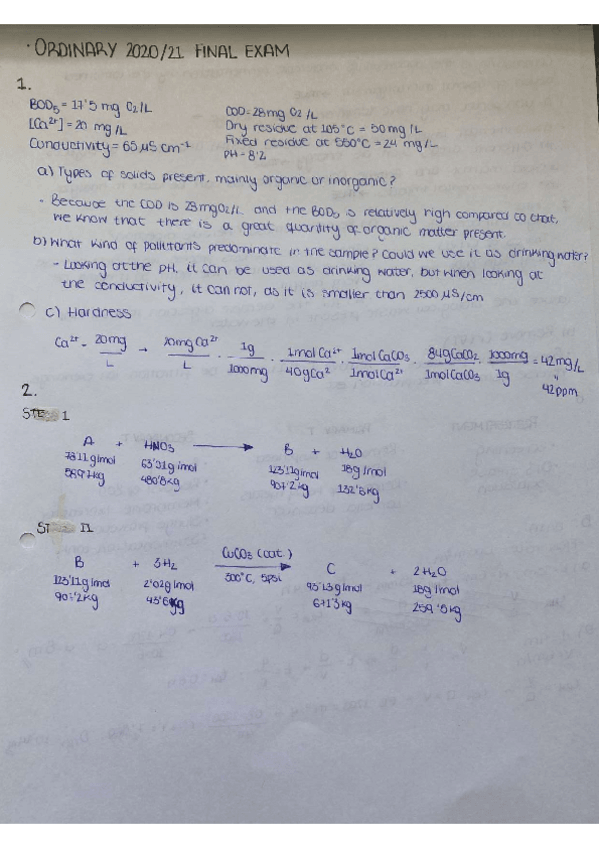 · ORDINARY 2020/21 FINAL EXAM
1.
BOD5 = 17'5 mg O2/L
[Ca2+] = 20 mg/L
Conductivity = 65 µS cm-1
COD = 28 mg O2/L
Dry residue at 105°C = 50 mg/L
Fixed residue at 550°C = 24 mg/L
pH = 8'2
a) Types of solids present, mainly organic or inorganic?
- Because the COD is 28 mg O2/L and the BOD5 is relatively high compared to that,
we know that there is a great quantity of organic matter present.
b) What kind of pollutants predominate in the sample? Could we use it as drinking water?
- Looking at the pH, it can be used as drinking water, but when looking at
the conductivity, it can not, as it is smaller than 2500 µS/cm
c) Hardness
Ca2+ = 20mg/L → 20mg Ca2+/L · 1g/1000mg · 1mol Ca2+/40g Ca2 · 1mol CaCO3/1mol Ca2+ · 84g CaCO2/1mol CaCO3 · 1000mg/1g = 42mg/L
"
42ppm
2.
STEP I
A + HNO3 → B + H2O
63'01g/mol 123'11g/mol 18g/mol
480'8kg 907'2kg 132'5kg
II
B + 3H2 → C + 2H2O
CuCO3 (cat.)
300°C, 5psi
123'11g/mol 2'02g/mol 93'13g/mol 18g/mol
671'3kg 259'5kg